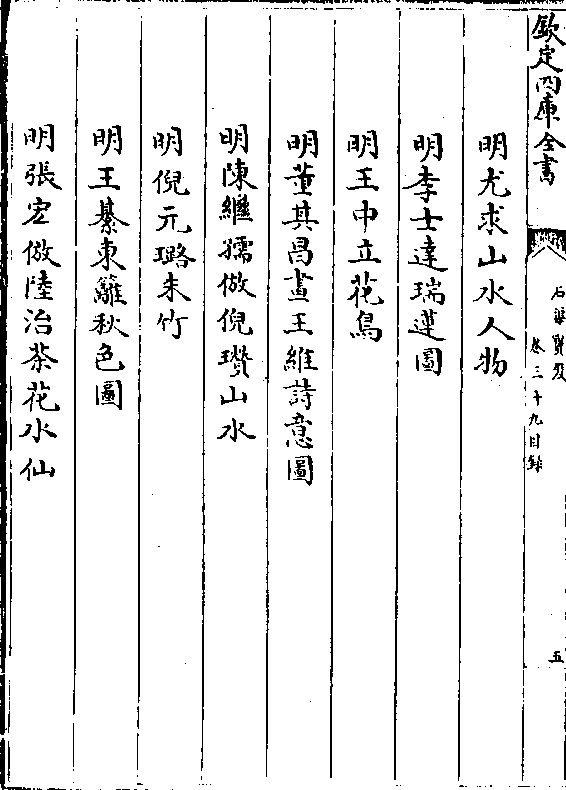 欽定四庫全書
石渠寳笈
卷三十九目錄
五
明尤求山水人物
明李士達瑞蓮圖
明王中立花鳥
明董其昌畫王維詩意圖
明陳繼孺倣倪瓚山水
明倪元璐朱竹
明王綦東籬秋色圖
明張宏倣陸治茶花水仙